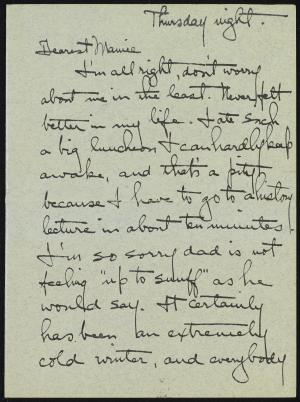 Thursday night.
Dearest Mamie
I'm all right, don't worry
about me in the least. Never felt
better in my life. I ate such
a big luncheon I can hardly keep
awake, and that's a pity
because I have to go to a history
lecture in about ten minutes.
I'm so sorry dad is not
feeling "up to snuff" as he
would say. It certainly
has been an extremely
cold winter, and everybody